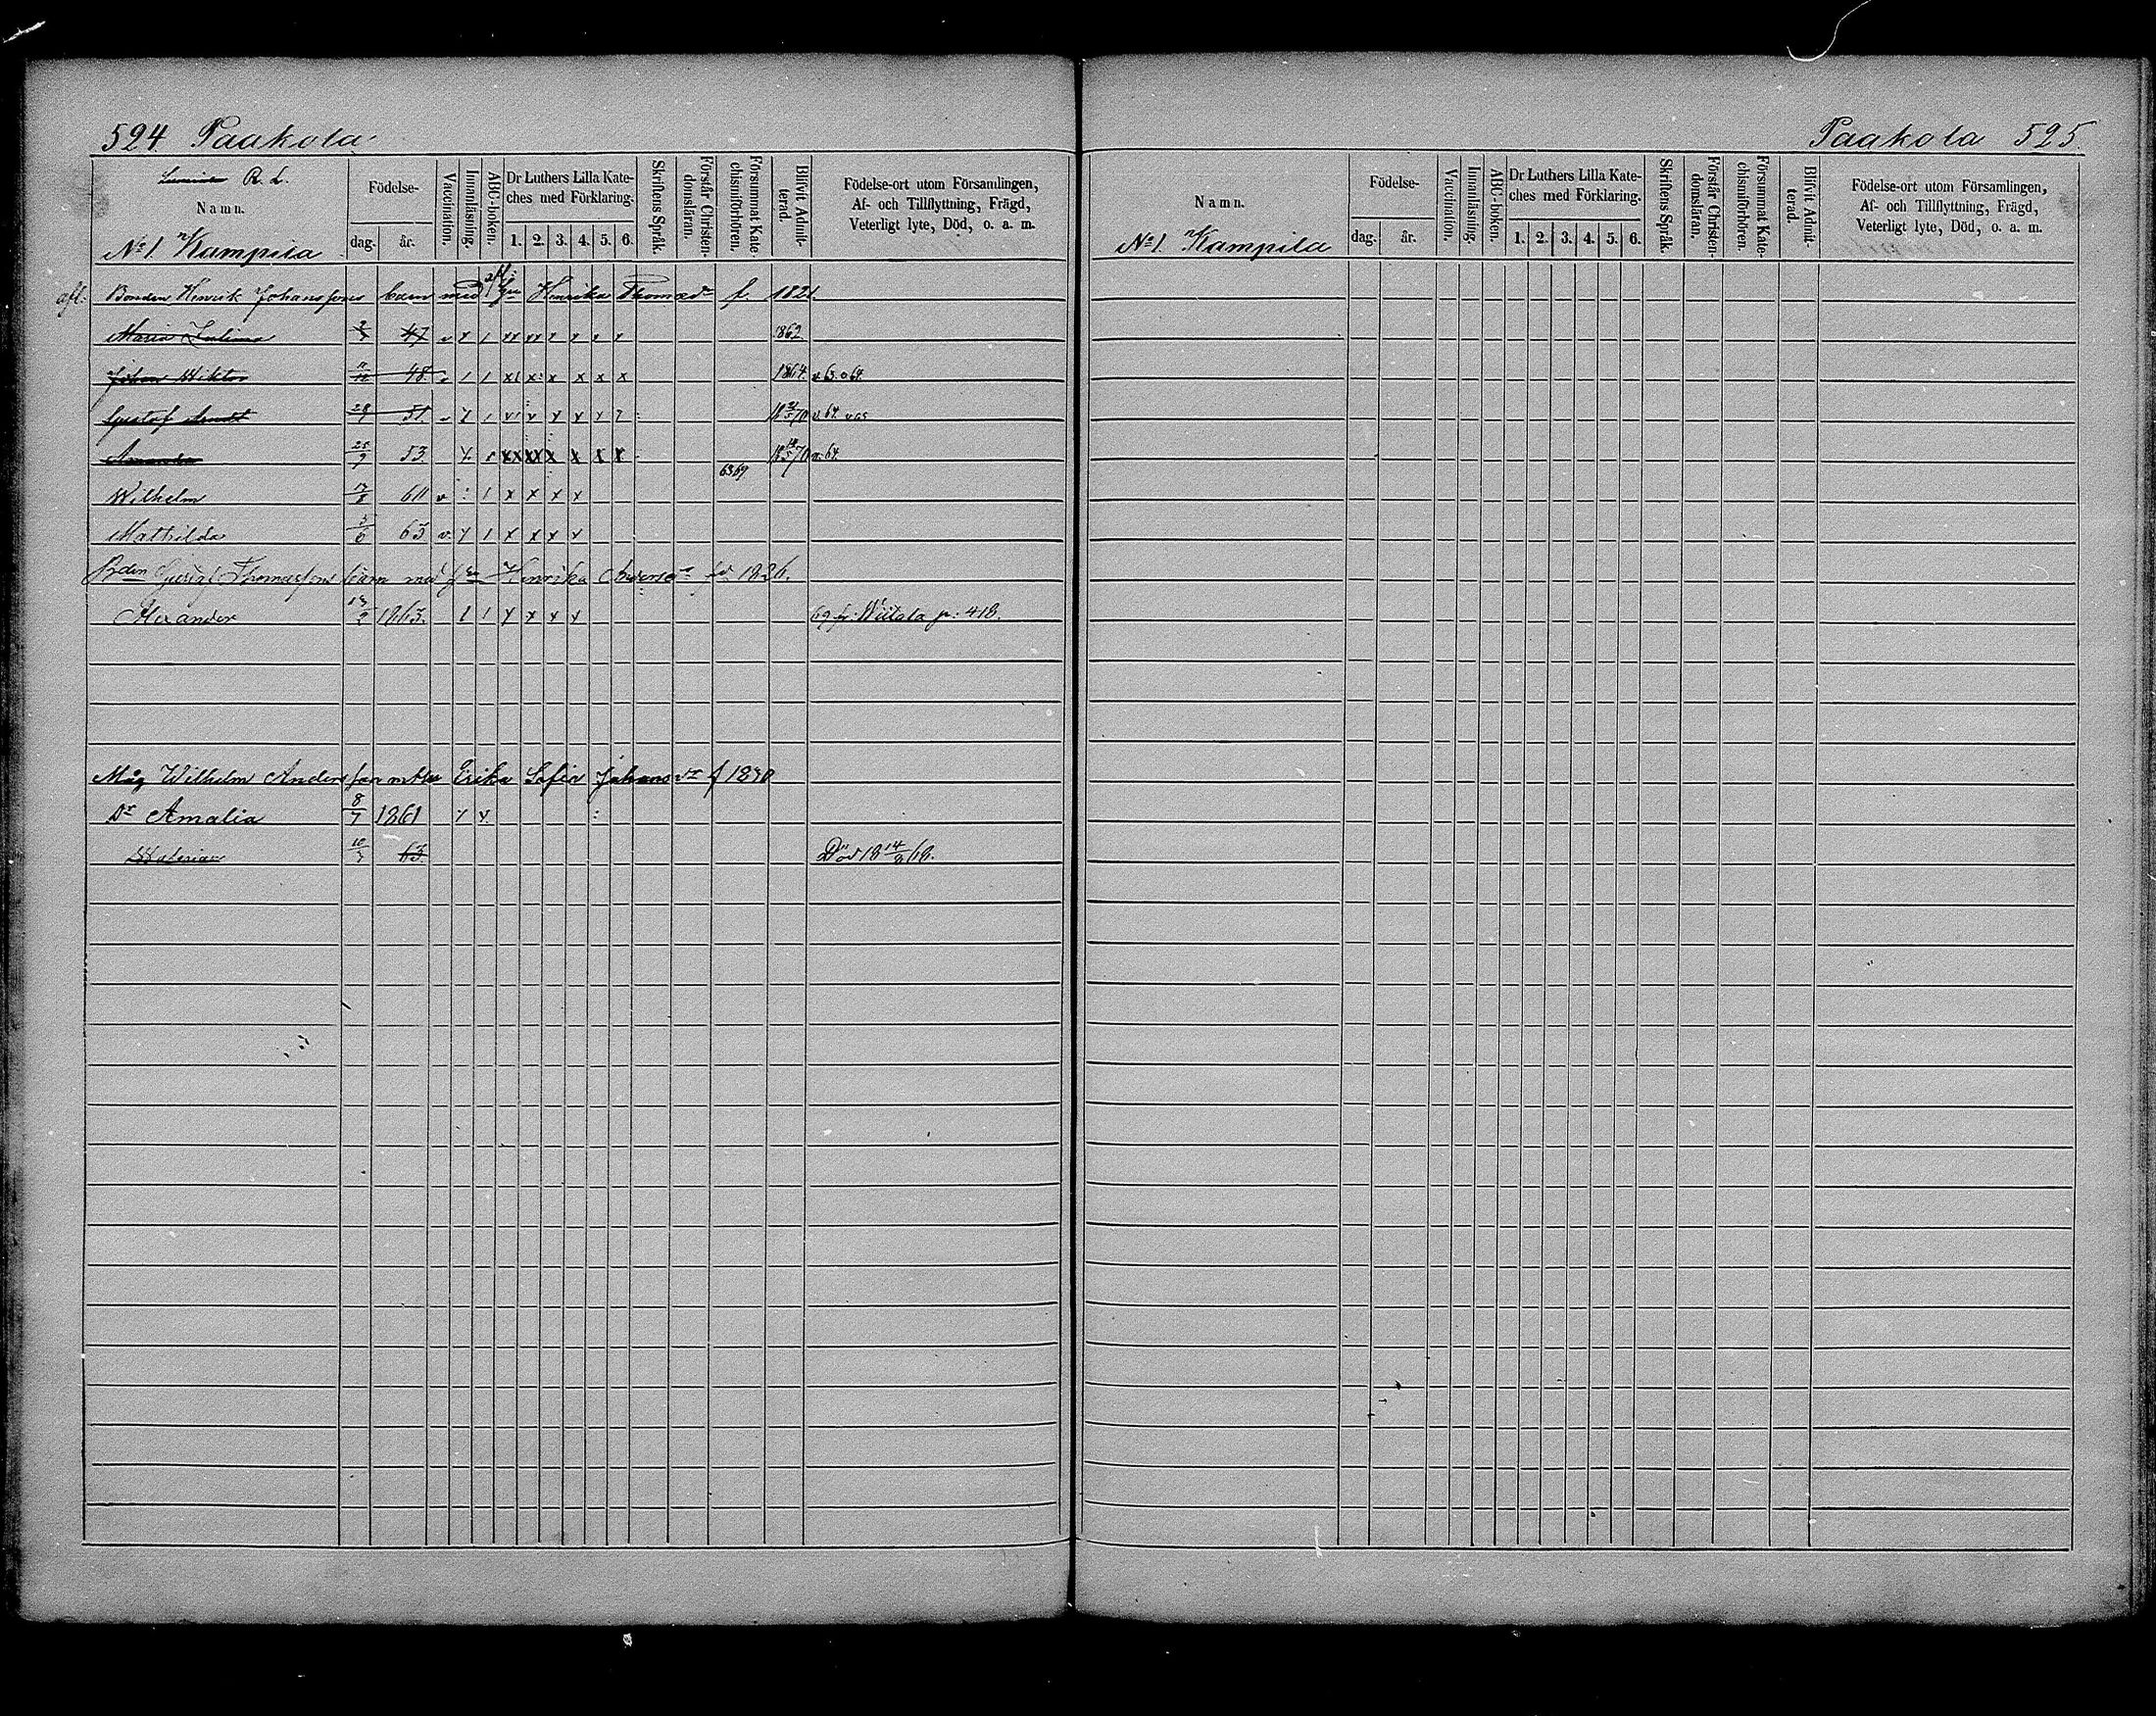 524. Paakola
R. L.
Namn.
Födelse-
dag.
år.
Vaccination.
Innanläsning.
ABC-boken.
Dr Luthers Lilla Kate-
ches med Förklaring.
1. 2. 3. 4. 5. 6.
Skriftens Språk.
Förstår Christen-
domsläran.
Försummat Kate-
chismiförhören.
Blifvit Admit-
terad.
Födelse-ort utom Församlingen,
Af- och Tillflyttning, Frägd,
Veterligt lyte, Död, o. a. m.
No 1. Kampila
afl. Bonden Henrik Johanssons barn med afl. Henrika Thomasdr f. 1821.
Maria 47 v x 1 xx xx x x x x 1862
Johan Wiktor 48. 1 1 x1 x: x x x x 1864.
Gustaf 29 51. v
Amanda 53. x x x x 64.
6369
Wilhelm 17/8 60 v : 1 x x x x
Mathilda 3/6 63 v x 1 x x x x
Bden Thomassons barn med Henrika Andersdr fd. 1826.
Alexander 1863. 1 1 x x x x 69 fr. Wiitala p: 418.
Måg Wilhelm Andersson m hu Erika Sofia Johansdr f 1840
Dr Amalia 8/7 1861 x x
10/7 63. Död 18 14/8 68.
Paakola 525.
Namn.
Födelse-
dag.
år.
Vaccination.
Innanläsning.
ABC-boken.
Dr Luthers Lilla Kate-
ches med Förklaring.
1. 2. 3. 4. 5. 6.
Skriftens Språk.
Förstår Christen-
domsläran.
Försummat Kate-
chismiförhören.
Blifvit Admit-
terad.
Födelse-ort utom Församlingen,
Af- och Tillflyttning, Frägd,
Veterligt lyte, Död, o. a. m.
No 1. Kampila